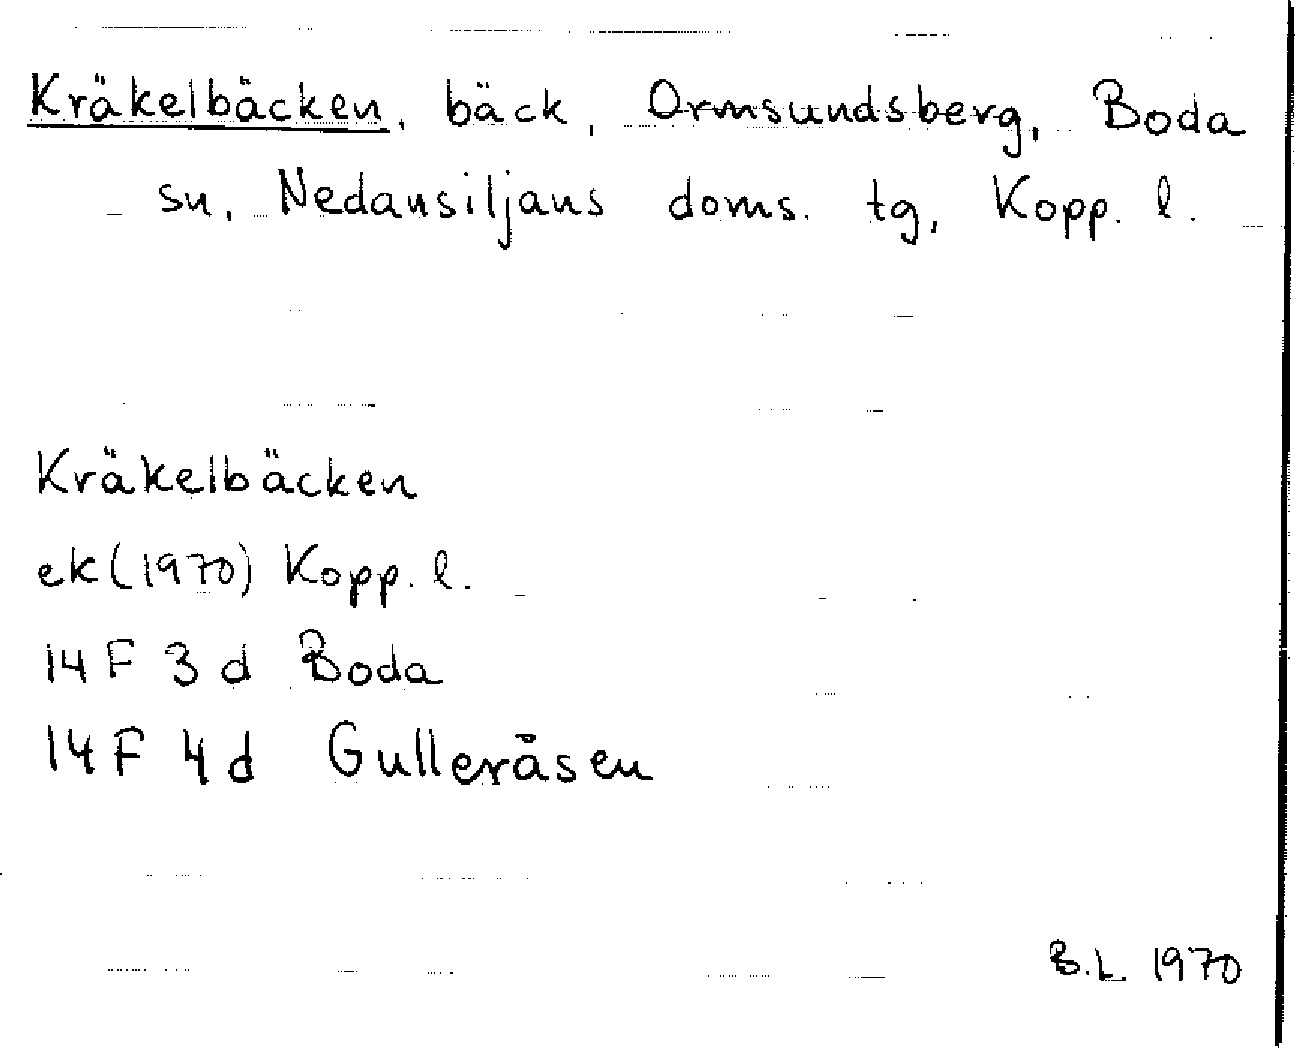 Kräkelbäcken, bäck, Ormsundsberg, Boda
sn, Nedansiljans doms. tg, Kopp. l.
Kräkelbäcken
ek (1970) Kopp. l.
14 F 3 d Boda
14 F 4 d Gulleråsen
B.L. 1970